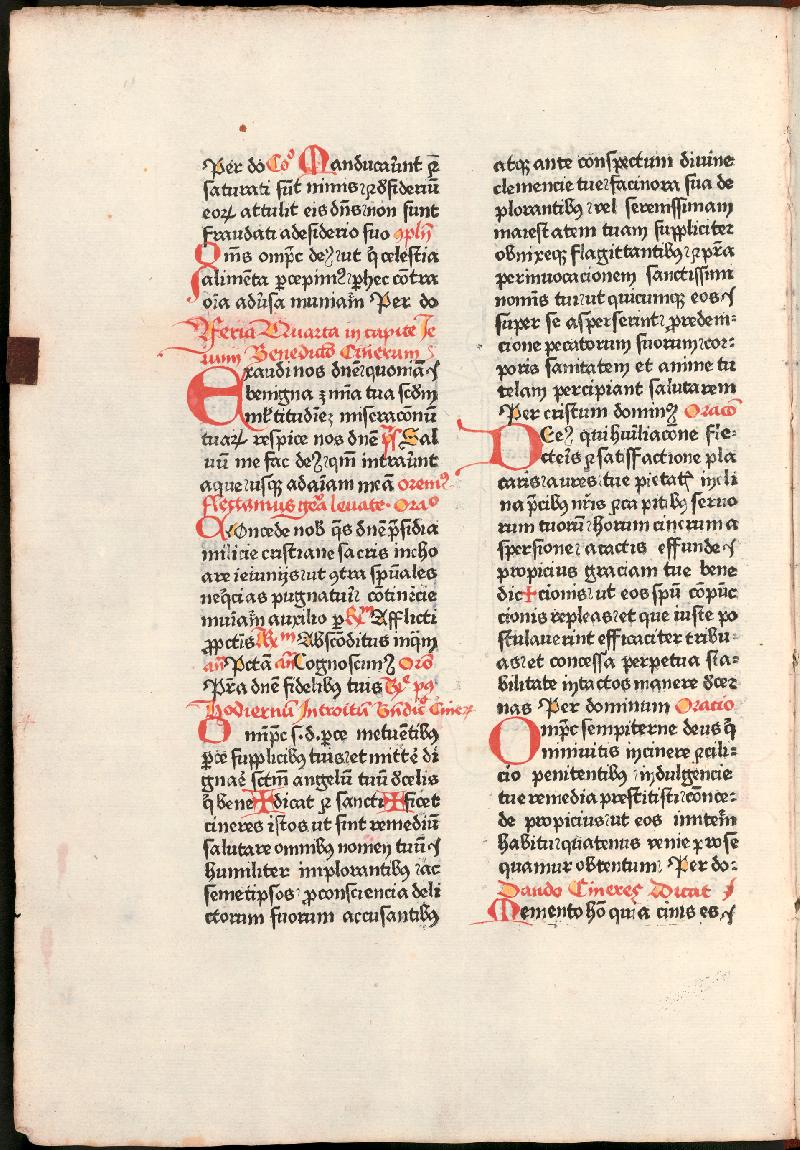 Per dō Cō Manducaūnt ⁊
saturati sūt nimis ⁊ dʼsideriū
eorꝝ attulit eis dn̄s: non sunt
fraudati a desiderio suo ꝯplēn̄
Oīns omp̄c deꝰ: ut q̄ celestia
alimēta ꝑcepimꝰ: ꝑ hec cōtra
oīa aduʼsa muniam̄ Per dō
Feria Quarta in capite Ie
iunij Benedictō Cinerum
Exaudi nos dn̄e: quoniā
benigna ē mīa tua scdm̄
mltitudiēꝫ miseracōnū
tuarꝝ respice nos dn̄e ps Sal
uū me fac deꝰ: qm̄ intraūnt
aque usqꝫ ad aīam meā oremꝰ
flectamus gēa leuate. Orao
Concede nob̄ q̄s dn̄e p̄sidia
milicie cristiane sacris incho
are ieiunijs: ut ꝯtra spūales
neq̄cias pugnaturi: cōtinēcie
muniam̄ auxilio ꝑ Rm Afflicti
ꝓ pctīs Rm Abscōditus inqm̄
añ Pctā añ Cognoscimꝰ Orō
Pr̄a dn̄e fidelibꝰ tuis Rc pꝯ
Hodiernū Introitū Bn̄dicō Cinerꝝ
Omīpc s.d. ꝑce metuētibꝰ
ꝑce supplicibꝰ tuis: et mittē di
gnaē sctm̄ angelū tuū dʼ celis
q̄ bene✠dicat ⁊ sancti✠ficet
cineres istos ut sint remediū
salutare omnibꝰ nomen tuū
humiliter implorantibꝰ: ac
semetipsos ꝓ consciencia deli
ctorum suorum accusantibꝰ
atqꝫ ante conspectum diuine
clemencie tue: facinora sua de
plorantibꝰ: vel serenissimam
maiestatem tuam suppliciter
obnixeqꝫ flagitantibꝰ: ⁊ pr̄a
per inuocacionem sanctissimi
nomīs tui: ut quicumqꝫ eos
super se asperserint: ꝓ redem⸗
cione peccatorum suorum: cor⸗
poris sanitatem et anime tu
telam percipiant salutarem
Per cristum dominꝫ Oracō
Deꝰ qui huīliacōne fle⸗
cterīs ⁊ satisffactione pla
caris: aures tue pietatꝭ incli
na p̄cibꝰ nr̄is: ⁊ capitibꝰ seruo
rum tuorū: horum cinerum a
spersione: atactis effunde
propicius graciam tue bene
dic✠cionis: ut eos spū cōpūc
cionis repleas: et que iuste po
stulauerint efficaciter tribu⸗
as: et concessa perpetua sta⸗
bilitate intactos manere dʼcer
nas Per dominum Oracio
Omīpc sempiterne deus q̄
niniuitis in cinere ⁊ cili⸗
cio penitentibꝰ: indulgencie
tue remedia prestitisti: conce⸗
de propicius: ut eos imitem̄
habitu: quatenus venie ꝓse
quamur obtentum: Per dō:
Dando Cineres Dicat
Memento hō quia cinis es